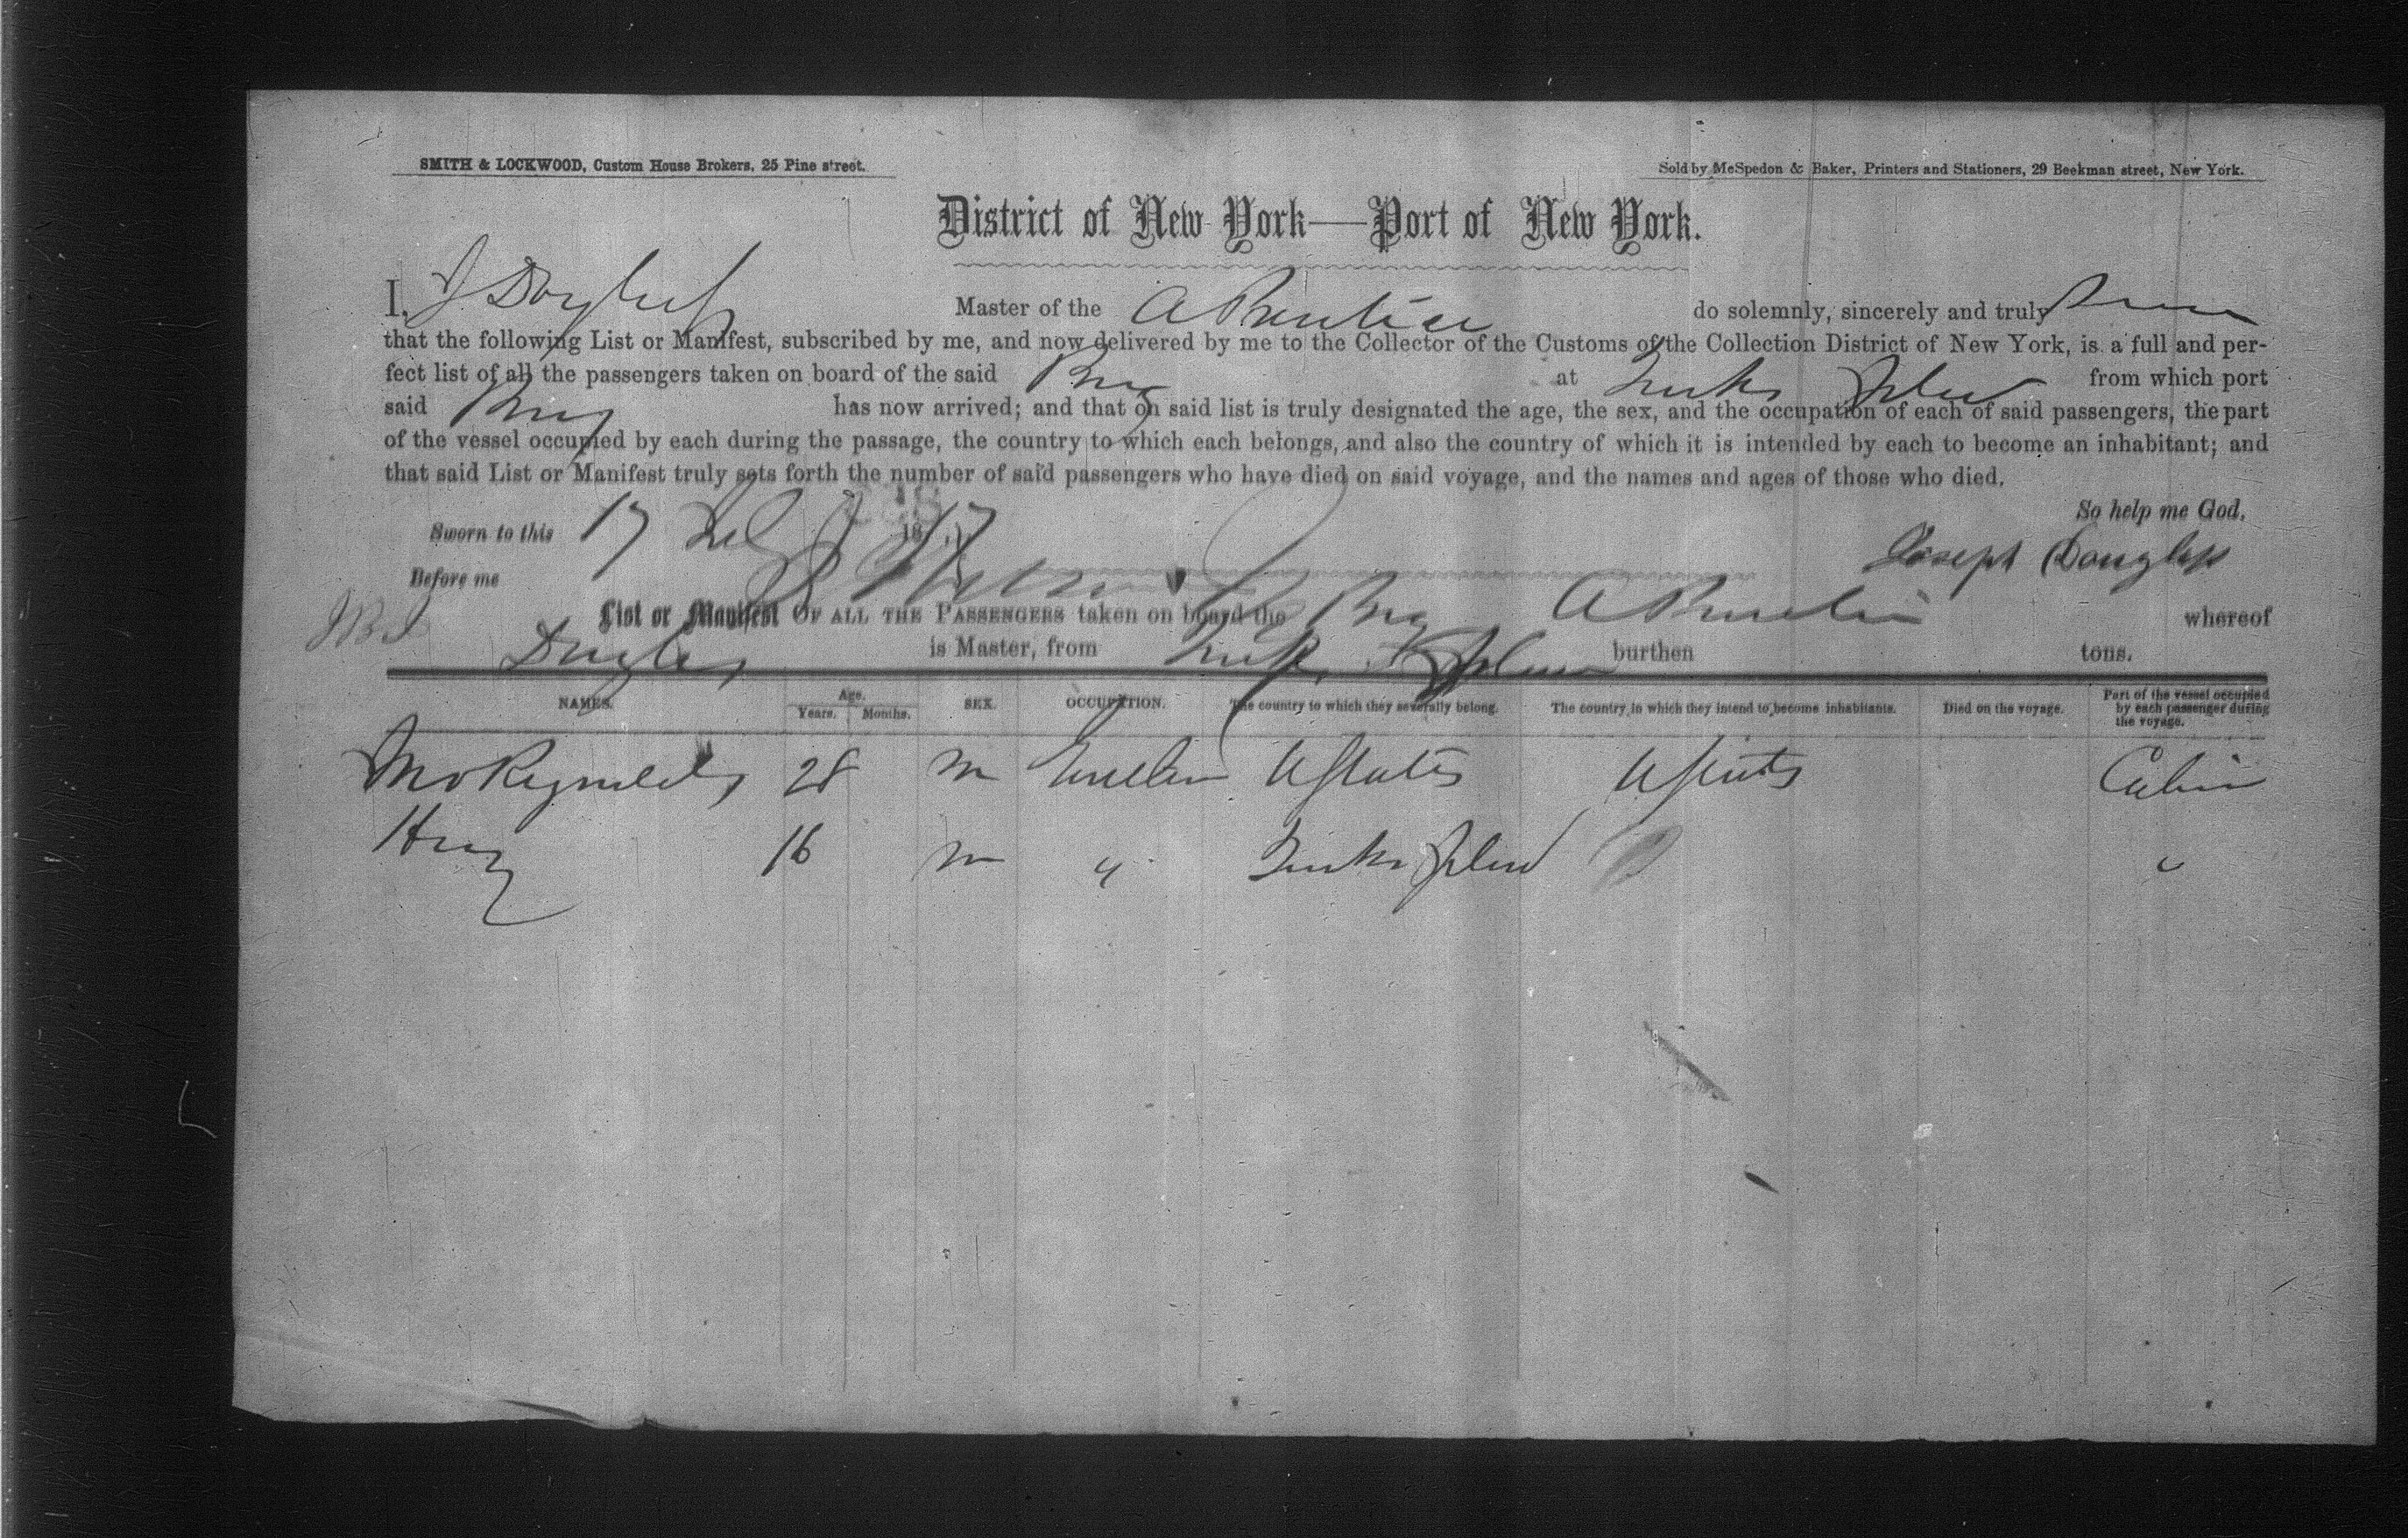 SMITH & LOCKWOOD, Custom House Brokers, 25 Pine street.
Sold by McSpedon & Baker, Printers and Stationers, 29 Beekman street, New York.
District of New York—Port of New York.
I, J Douglass Master of the A Prentice do solemnly, sincerely and truly
that the following List or Manifest, subscribed by me, and now delivered by me to the Collector of the Customs of the Collection District of New York, is a full and per-
fect list of all the passengers taken on board of the said Brig at Turks Island from which port
said Brig has now arrived; and that on said list is truly designated the age, the sex, and the occupation of each of said passengers, the part
of the vessel occupied by each during the passage, the country to which each belongs, and also the country of which it is intended by each to become an inhabitant; and
that said List or Manifest truly sets forth the number of said passengers who have died on said voyage, and the names and ages of those who died.
So help me God,
Sworn to this 17 18
Joseph Douglass
Before me
List or Manifest OF ALL THE PASSENGERS taken on board the Brig A Prentice whereof
Douglass is Master, from Turks Island burthen tons.
NAMES. Age. Years. Months. SEX. OCCUPATION. The country to which they severally belong. The country in which they intend to become inhabitants. Died on the voyage. Part of the vessel occupied by each passenger during the voyage.
Reynolds 28 m UStates UStates Cabin
16 m " Turks Island "